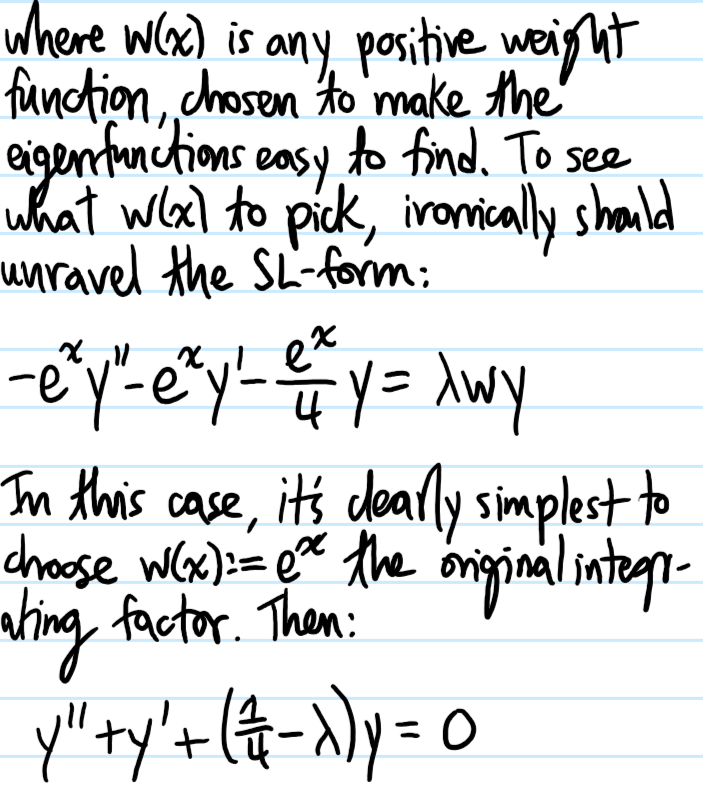 where w(x) is any positive weight
function, chosen to make the
eigenfunctions easy to find. To see
what w(x) to pick, ironically should
unravel the SL-form:
-eˣy''-eˣy'-eˣ/4 y = λwy
In this case, it's clearly simplest to
choose w(x):=eˣ the original integr-
ating factor. Then:
y''+y'+(1/4-λ)y = 0